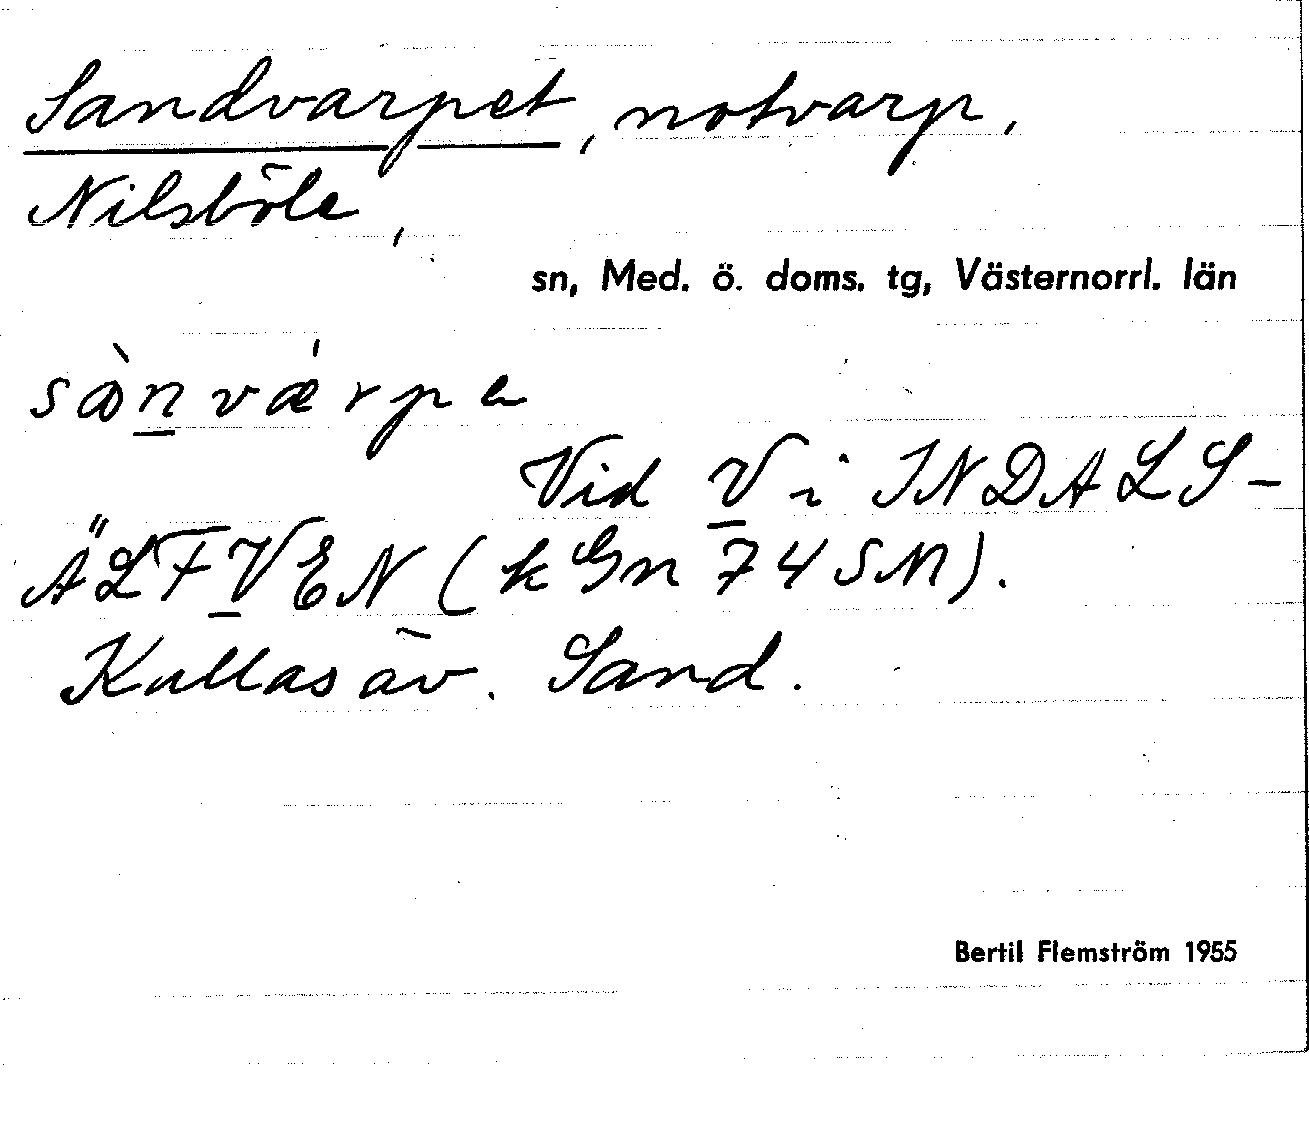 Sandvarpet, notvarp,
Nilsböle,
sn, Med. ö. doms. tg, Västernorrl. län
sànværpe
Vid V i INDALS-
ÄLFVEN (k Gn 74 SM).
Kallas äv. Sand.
Bertil Flemström 1955